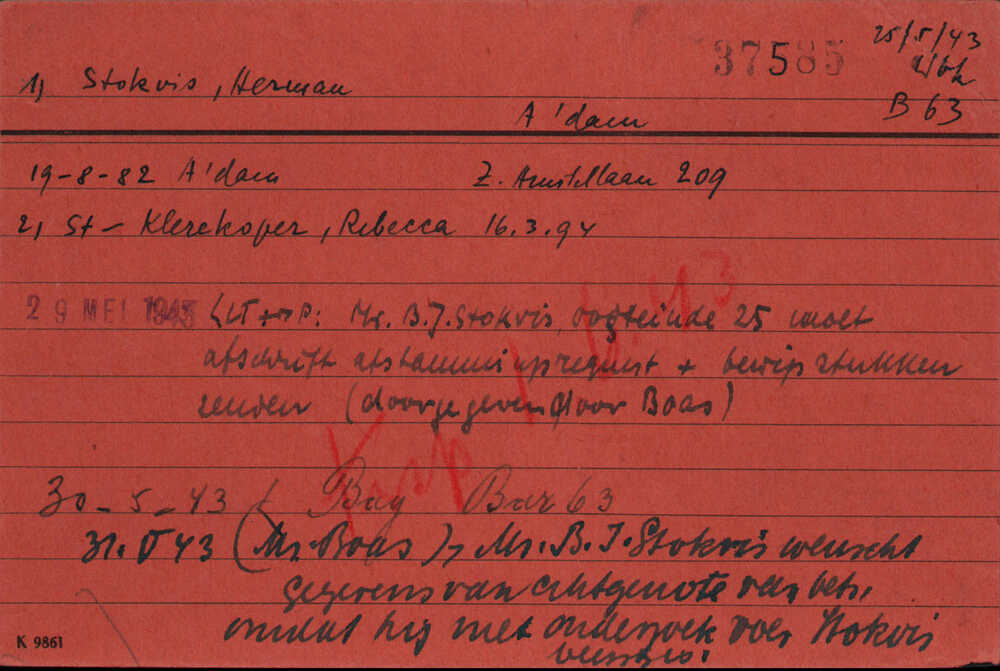 37585
25/5/43
1) Stokvis, Herman
A'dam
B 63
19-8-82 A'dam Z. Amstellaan 209
2) St- Klerekoper, Rebecca 16.3.94
29 MEI 1943 Mr. B.J. Stokvis, 25 moet
afschrift afstammingsrequest + bewijsstukken
zenden (doorgegeven door Boas)
30-5-43 Bar 63
31.V 43 (Mr. Boas), Mr. B.J. Stokvis wenscht
gegevens van echtgenote van betr.
omdat hij met onderzoek voor Stokvis
bezig is.
K 9861